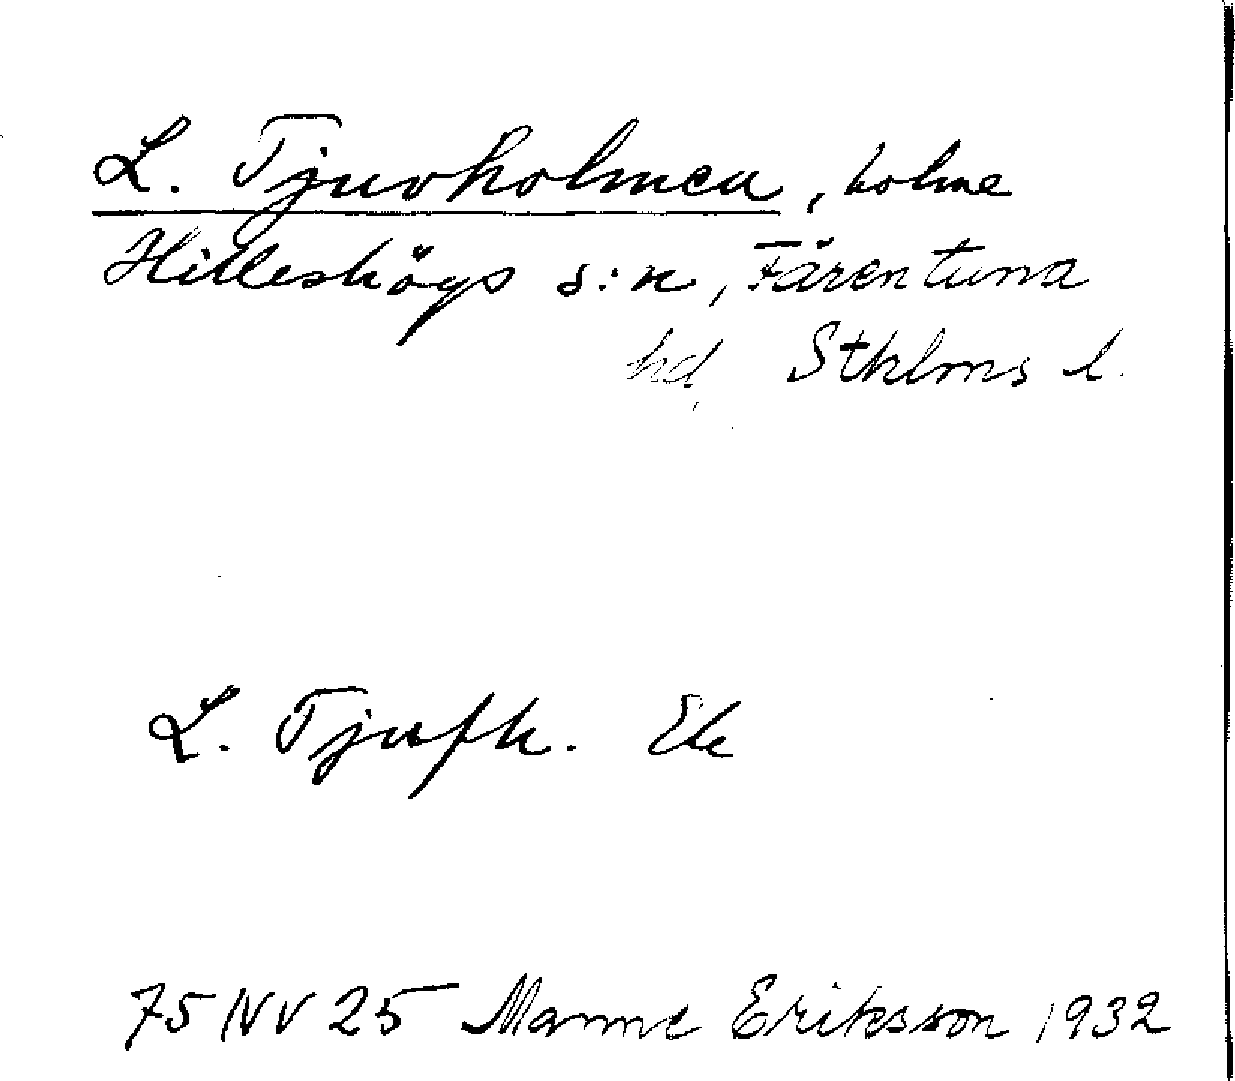 L. Tjuvholmen, holme
Hilleshögs s:n, Färentuna
hd, Stklms l.
L. Tjufh. Ek
75 NV 25 Manne Eriksson 1932